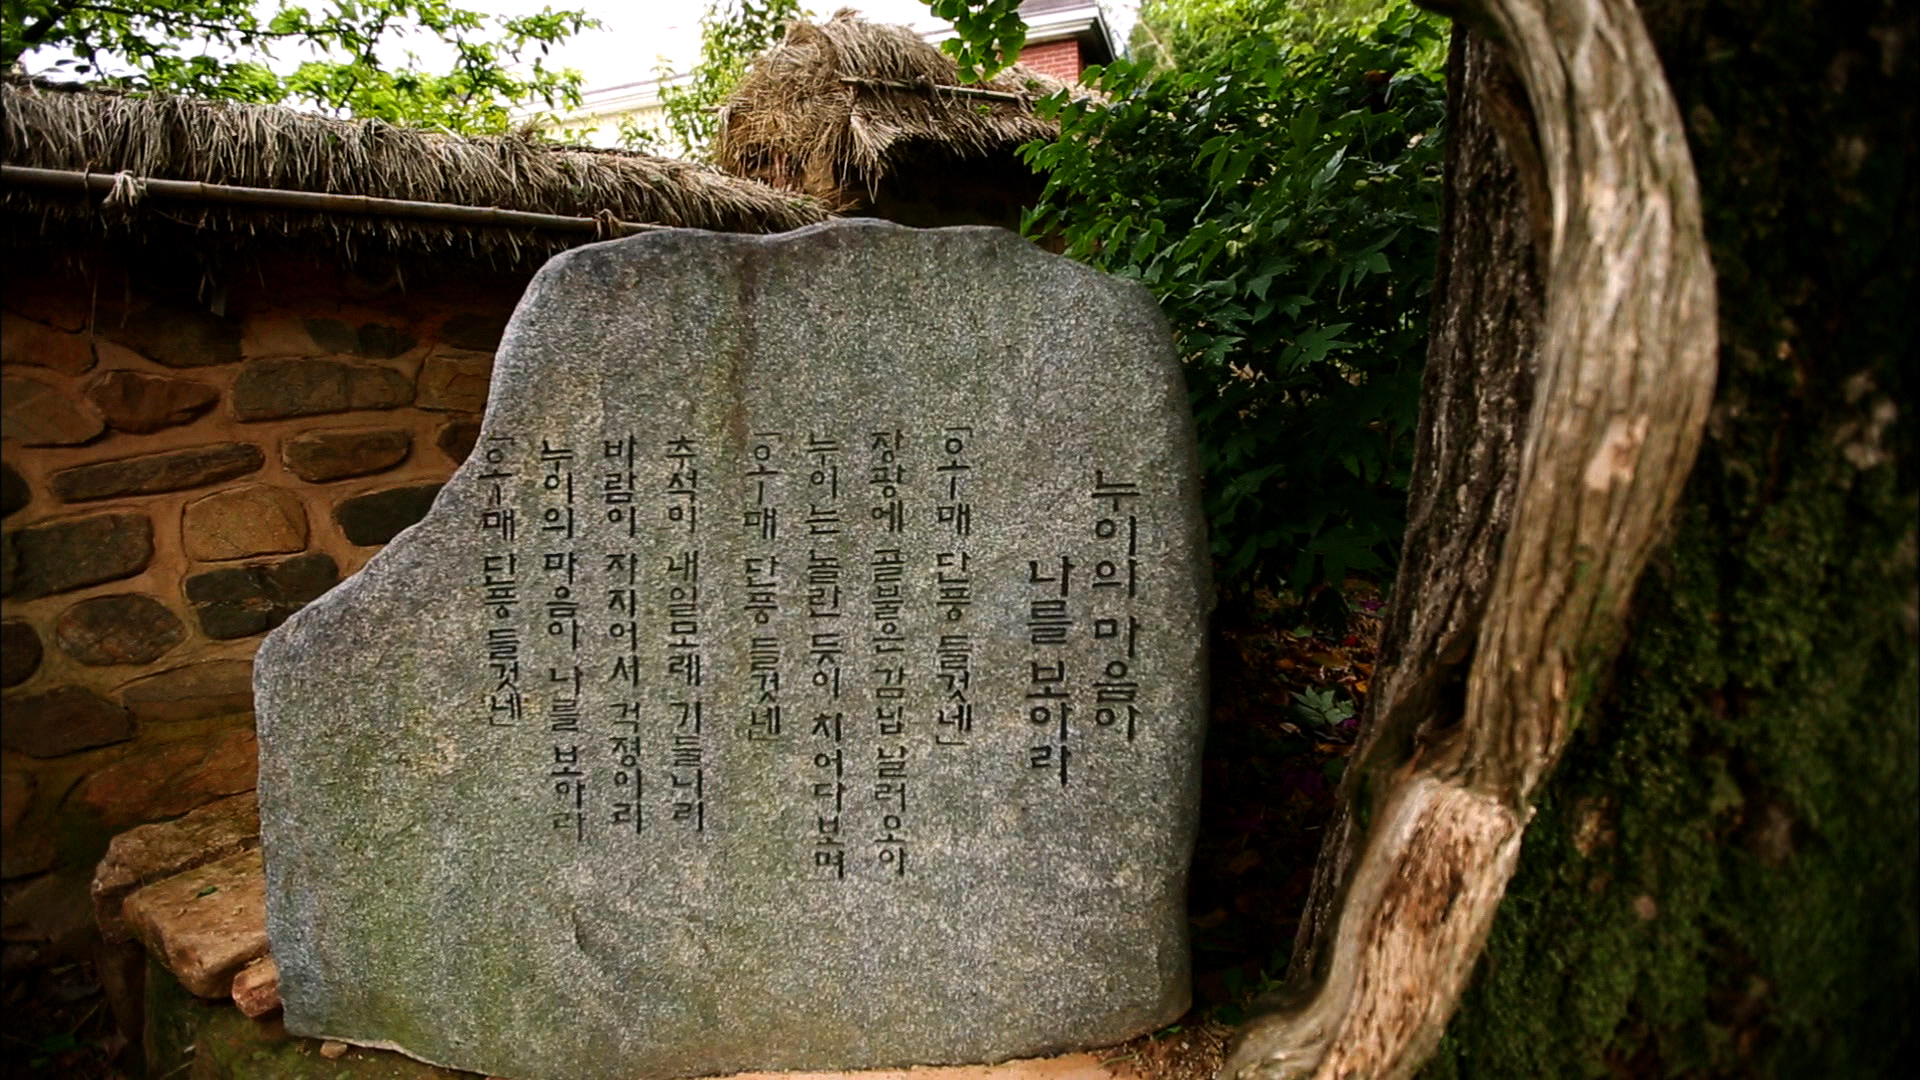 누이의 마음아
나를 보아라
「오-매 단풍 들것네」
장광에 골붉은 감닙 날러오아
누이는 놀란 듯이 치어다보며
「오-매 단풍 들것네」
추석이 내일모래 기둘니리
바람이 자지어서 걱정이리
누이의 마음아 나를 보아라
「오-매 단풍 들것네」